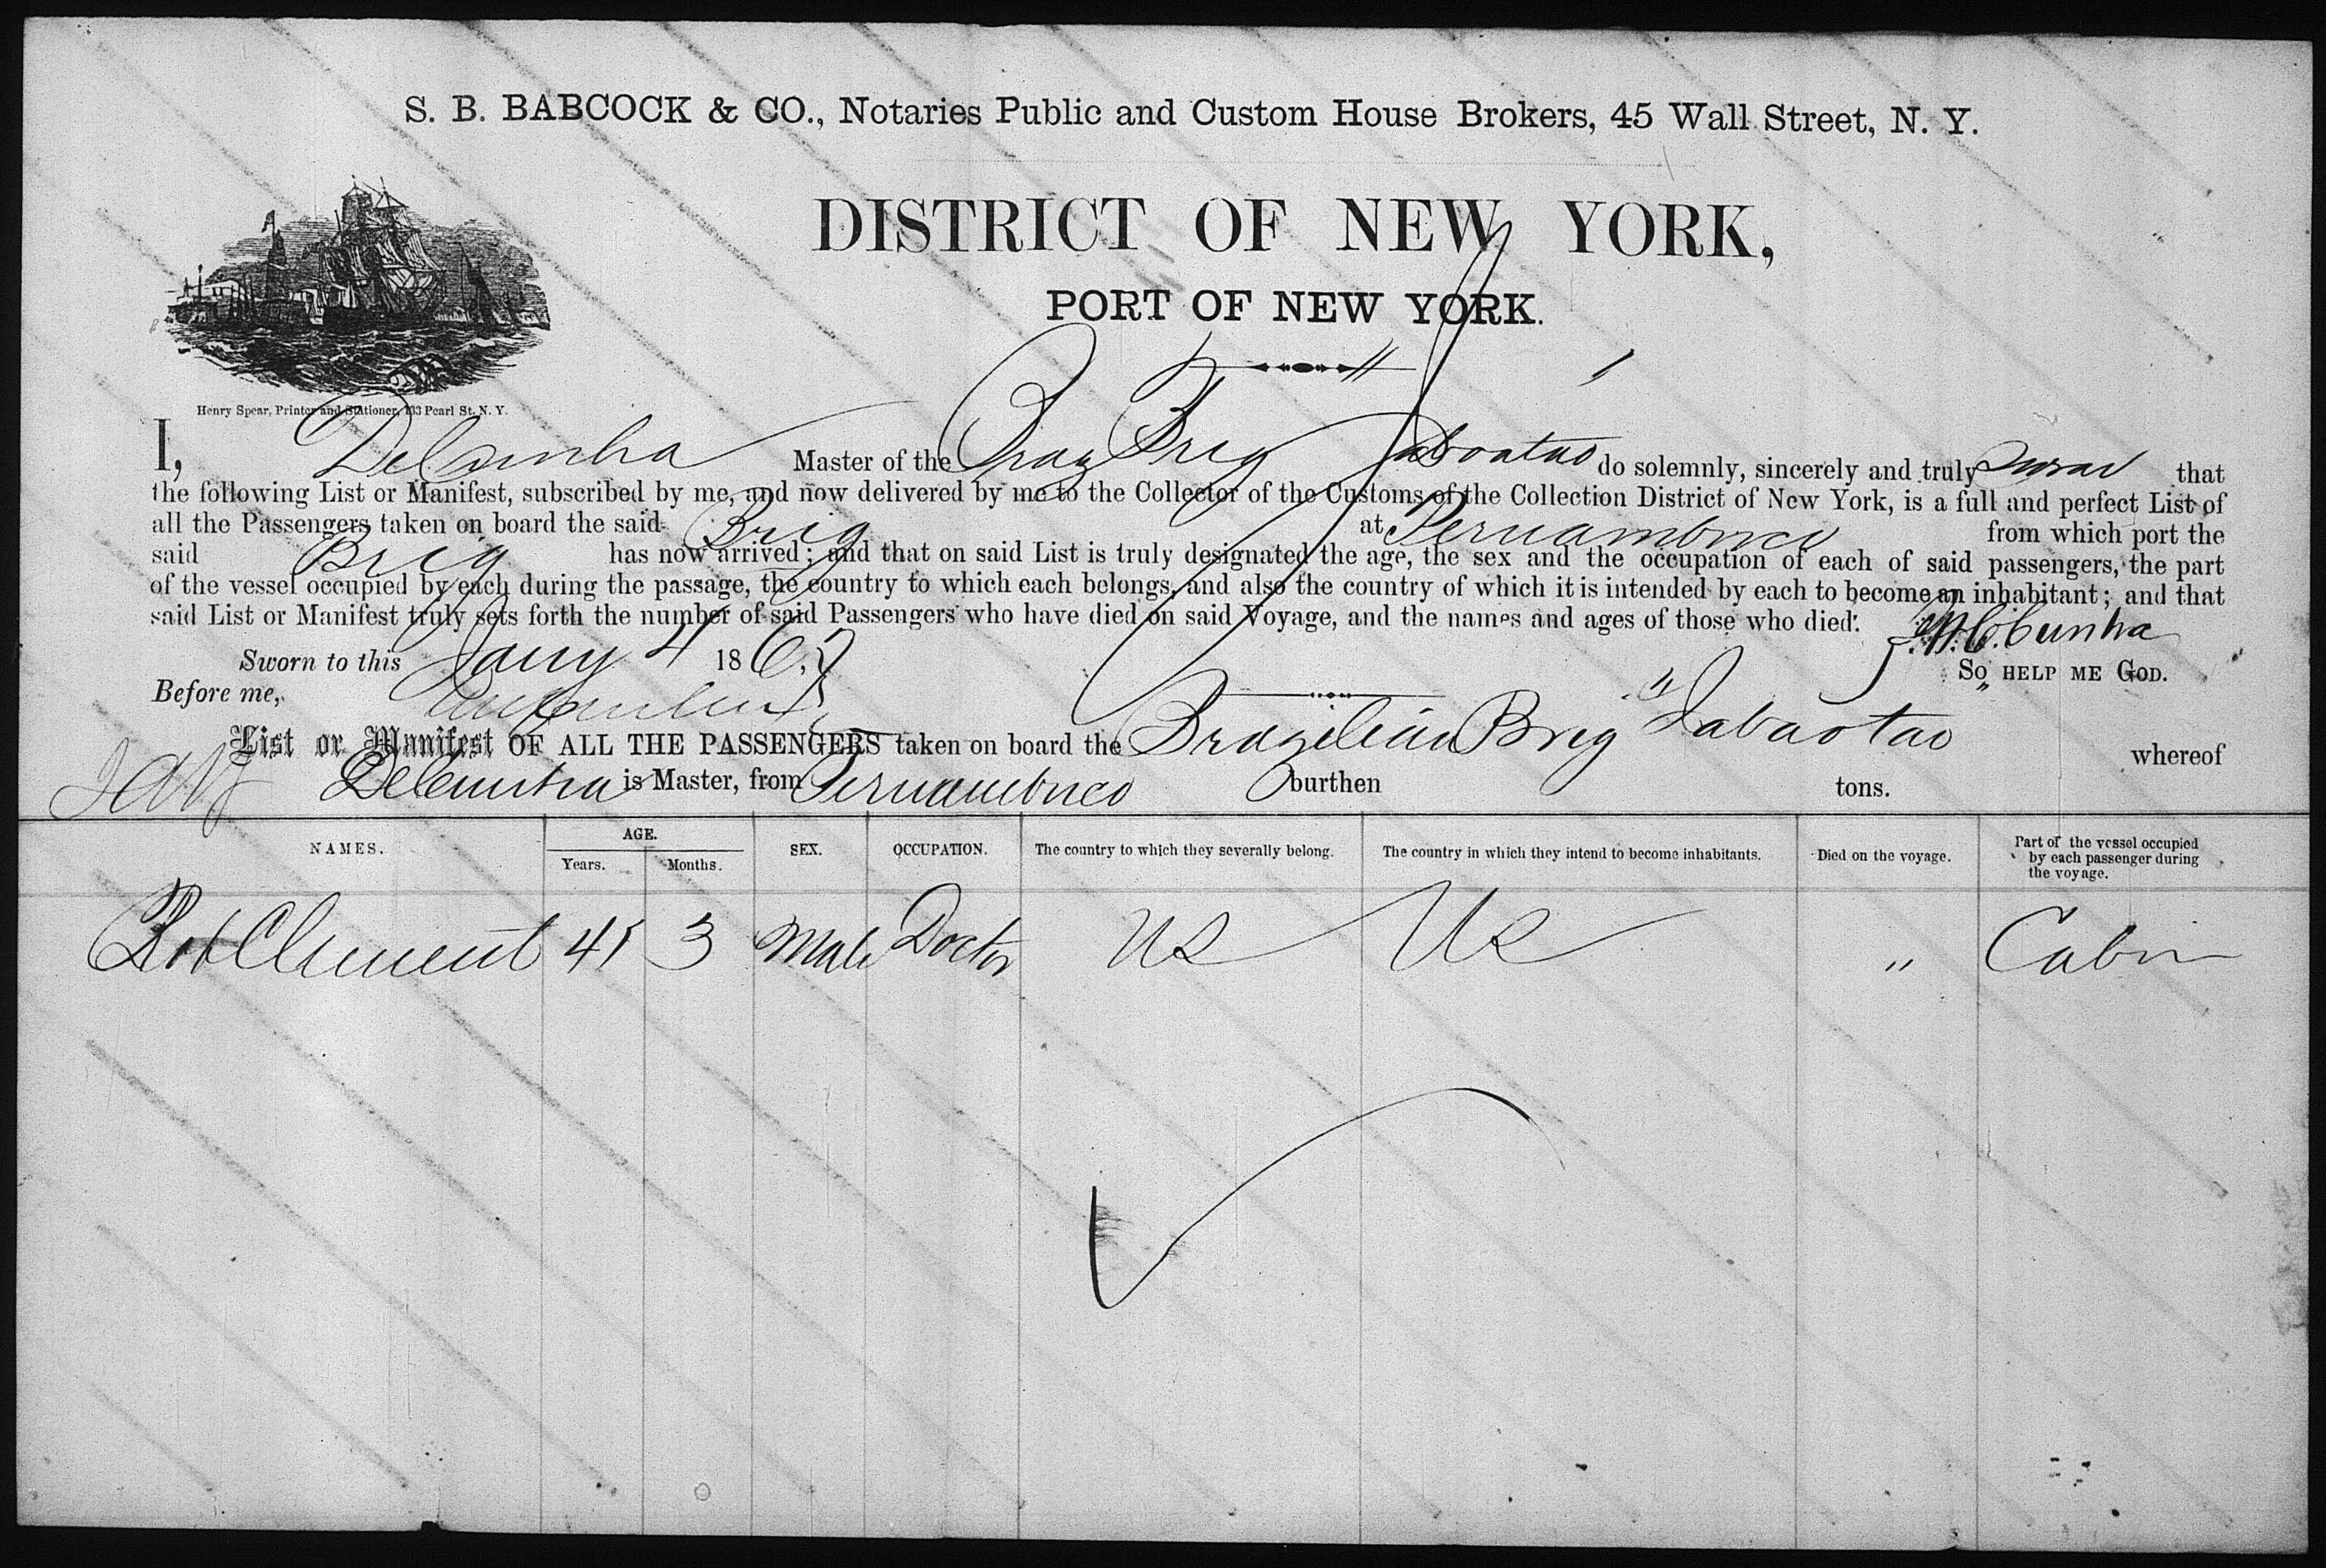 S. B. BABCOCK & CO., Notaries Public and Custom House Brokers, 45 Wall Street, N. Y.
DISTRICT OF NEW YORK,
PORT OF NEW YORK.
Henry Spear, Printer and Stationer, 133 Pearl St. N. Y.
I, DeCunha Master of the Braz Brig Jaboatao do solemnly, sincerely and truly swear that
the following List or Manifest, subscribed by me, and now delivered by me to the Collector of the Customs of the Collection District of New York, is a full and perfect List of
all the Passengers taken on board the said Brig at Pernambuco from which port the
said Brig has now arrived; and that on said List is truly designated the age, the sex and the occupation of each of said passengers, the part
of the vessel occupied by each during the passage, the country to which each belongs, and also the country of which it is intended by each to become an inhabitant; and that
said List or Manifest truly sets forth the number of said Passengers who have died on said Voyage, and the names and ages of those who died.
Sworn to this Jany 4 186 Cunha
Before me, SO HELP ME GOD.
List or Manifest OF ALL THE PASSENGERS taken on board the Brazilian Brig "Jaboatao whereof
DeCunha is Master, from Pernambuco burthen tons.
NAMES. AGE. Years. Months. SEX. OCCUPATION. The country to which they severally belong. The country in which they intend to become inhabitants. Died on the voyage. Part of the vessel occupied by each passenger during the voyage.
Rob Clement 45 3 Male Doctor US US " Cabin